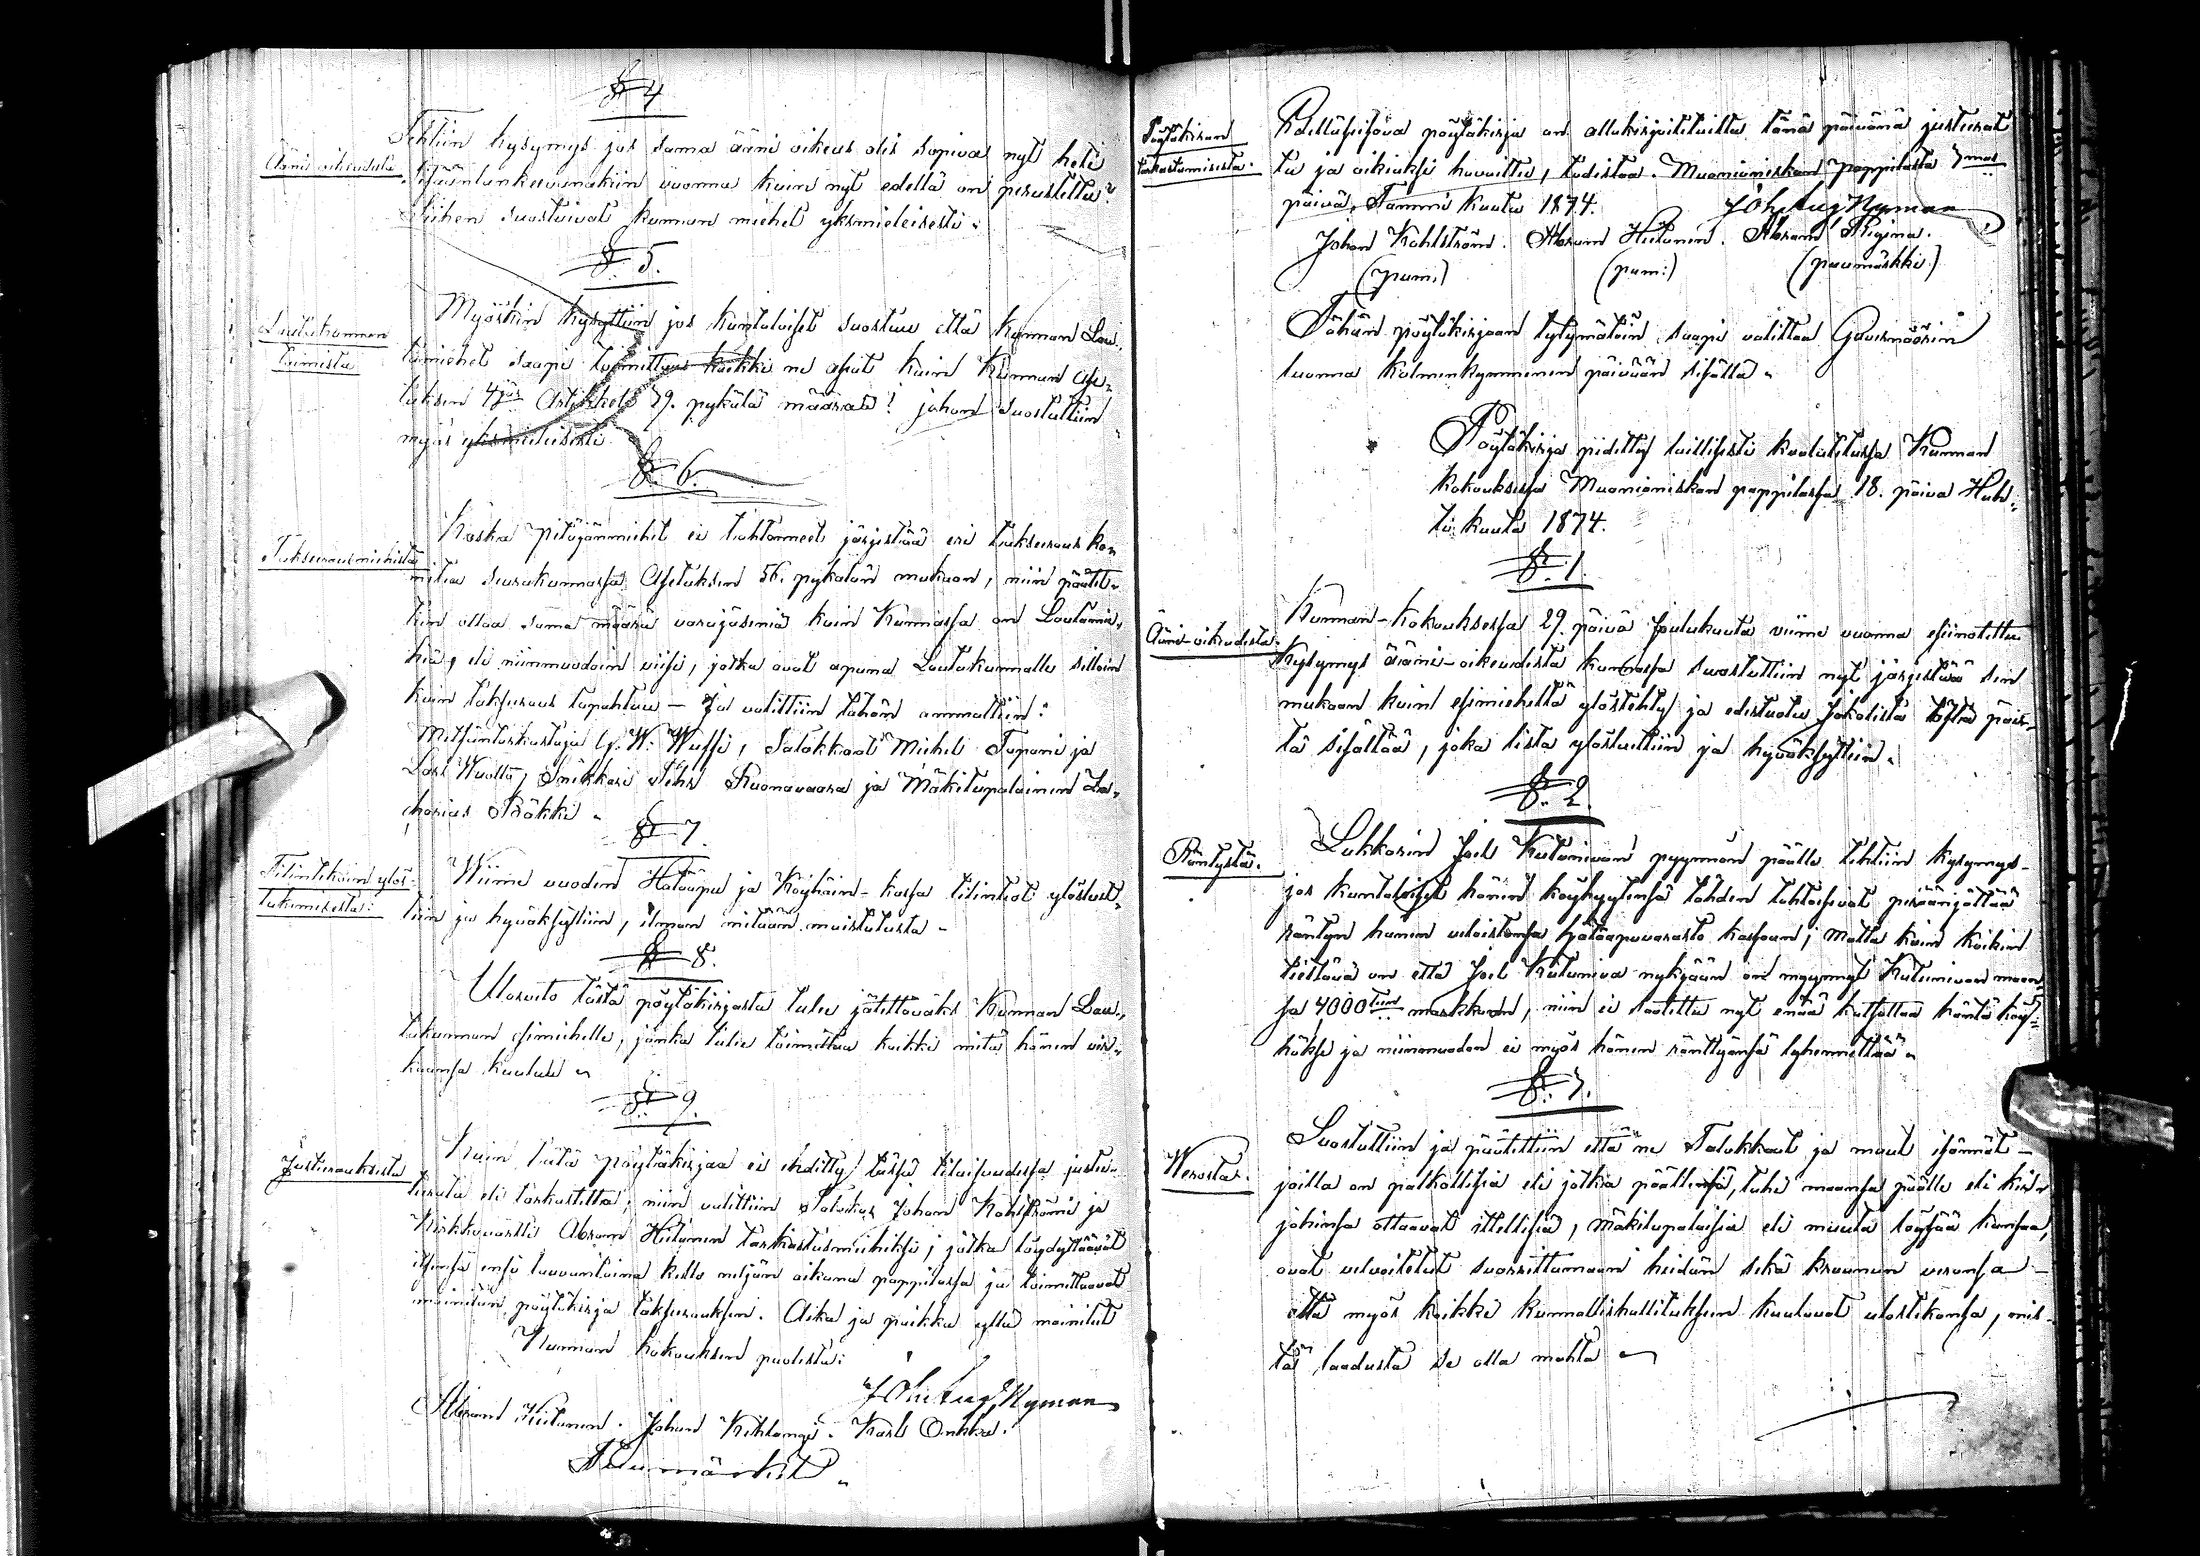 § 4
Ääni oikeudesta
Tehtiin kysymys jos sama ääni oikeus olis sopiva nyt heti
sisääntunkeuvunakin vuonna kuin nyt edellä on perustettu?
Siihen suostuivat kunnan miehet yksimieleisesti.
§ 5.
Lautakunnan
toimista
Myöskin kysyttiin jos kuntalaiset suostuu että Kunnan Lau-
tamiehet saapi toimittaa kaikki ne asiat kuin Kunnan ase-
tuksen 4jäs Artikkeli 29. pykälä määrää? johon suostuttiin
myös yksimieleisesti
§ 6.
Takseerausmiehistä
Koska Pitäjänmiehet ei tahtoneet järjestää eri takseeraus ko-
mitea seurakunnassa Asetuksen 56. pykälän mukaan, niin päätet-
tiin ottaa sama määrä varajäseniä kuin Kunnassa on Lautamie-
hiä, eli niinmuodoin viisi, jotka ovat apuna Lautakunnalle silloin
kuin takseeraus tapahtuu – Ja valittiin tähän ammattiin:
Metsäntarkastaja G. W. Wuffi, Talokkaat Michel Tapani ja
Lars Wuolta, Snikkari Pehr Ruonavaara ja Mäkitupalainen Za-
charias Räkki.
§ 7.
Tilintekoin ylös-
lukemisesta:
Wiime vuoden Hätäapu ja Köyhäin-kassa tilinteot ylösluet-
tiin ja hyväksyttiin, ilman mitään muistutusta.
§ 8.
Ulosveto tästä pöytäkirjasta tulee jätettäväks Kunnan Lau-
takunnan esimiehelle, jonka tulee toimittaa kaikki mitä hänen vir-
kaansa kuuluu.
§ 9.
Justeerauksesta
Kuin tätä pöytäkirjaa ei ehditty tässä tilaisuudessa justee-
rata eli tarkastetta, niin valittiin Talokas Johan Kohlström ja
Kirkkovärtti Abram Hietanen tarkastusmieheksi, jotka löydyttäävät
itsensä ensi lauvantaina kello neljän aikana pappilassa ja toimittaavat
mainitun pöytäkirja takseerauksen. Aika ja paikka yllä mainitut
Kunnan Kokouksen puolesta:
Joh. Aug. Nyman
Abram Hietanen. Johan Kihlangi. Karl Onkka.
Puumärkit
Pöytäkirjan
tarkastamisesta.
Edelläseisova pöytäkirja on allakirjoitetuilta tänä päivänä justeerat-
tu ja oikiaksi havaittu, todistaa. Muonionniskan pappilasta 7mas
päivä Tammi kuuta 1874. Joh. Aug. Nyman
Johan Kohlström. Abram Hietanen. Abram Regina.
(pum:) (pum:) (puumärkki)
Tähän pöytäkirjaan tytymätöin saapi valittaa Guvernöörin
luonna kolmenkymmenen päivään sisällä.
Pöytäkirja pidetty laillisesti kuulutetussa Kunnan
kokouksessa Muonionniskan pappilassa 18. päivä Huh-
ti kuuta 1874.
§ 1.
Ääni-oikeudesta.
Kunnan-kokouksessa 29. päivä Joulukuuta viime vuonna esiinotettu
kysymys ääni-oikeudesta kunnassa suostuttiin nyt järjestää sen
mukaan kuin esimieheltä ylöstehty ja edestuotu Jakolista tästä päis-
tä sisältää, joka lista ylösluettiin ja hyväksyttiin.
§ 2.
Räntystä.
Lukkarin Joel Kutunivan pyynnön päälle tehtiin kysymys-
jos kuntalaiset hänen köyhyytensä tähden tahtoisivat peräänjättää
räntyn hänen velaistansa hätäapuvarasto kassaan; Mutta kuin kaikin
tiettävä on että Joel Kutuniva nykyään on myynnyt Kutunivan maan-
sa 4000 tuh markkaan, niin ei taatittu nyt enää kutsuttaa häntä köy-
häksi ja niinmuodon ei myös hänen ränttyänsä lyhennettää.
§ 3.
Werosta.
Suostuttiin ja päätettiin että ne Talokkaat ja muut isännät –
joilla on palkollisia eli jotka päällensä, taka maansa päälle eli kir-
johinsa ottaavat itsellisiä, mäkitupalaisia eli muuta löysää kansaa,
ovat velvoitetut suorittamaan heidän sekä kruunun veronsa –
että myös kaikki kunnallishallitukseen kuuluvat ulostekonsa, mis-
tä laadusta se olla mahta